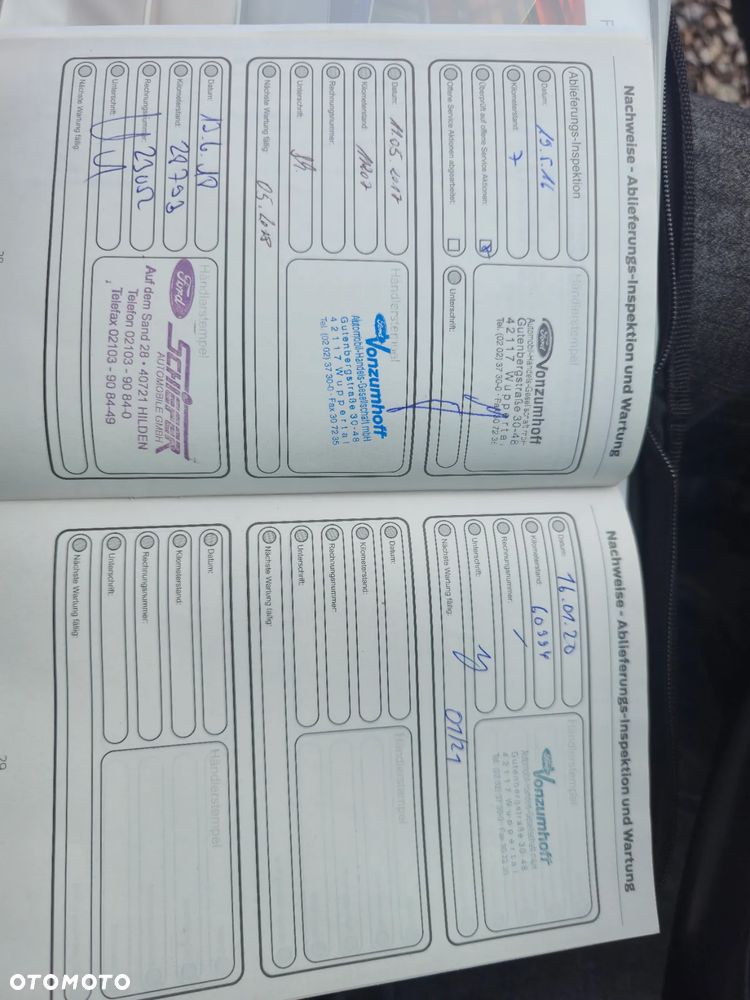 Nachweise - Ablieferungs-Inspektion und Wartung
Ablieferungs-Inspektion
Datum: 19.5.16
Kilometerstand: 7
Überprüft auf offene Service Aktionen:
Offene Service Aktionen abgearbeitet:
Unterschrift:
Händlerstempel
Ford Vonzumhoff
Automobil-Handels-Gesellschaft mbH
Gutenbergstraße 30-48
42117 Wuppertal
Tel. (02 02) 37 30-0 · Fax 30 72 35
Datum: 11.05.2017
Kilometerstand:
Rechnungsnummer:
Unterschrift:
Nächste Wartung fällig: 05.2018
Händlerstempel
Ford Vonzumhoff
Automobil-Handels-Gesellschaft mbH
Gutenbergstraße 30-48
42117 Wuppertal
Tel. (02 02) 37 30-0 · Fax 30 72 35
Datum:
Kilometerstand: 29793
Rechnungsnummer:
Unterschrift:
Nächste Wartung fällig:
Händlerstempel
Ford SCHIEFER
AUTOMOBILE GMBH
Auf dem Sand 28 - 40721 HILDEN
Telefon 02103 - 90 84-0
Telefax 02103 - 90 84-49
Nachweise - Ablieferungs-Inspektion und Wartung
Datum: 16.01.20
Kilometerstand: 60994
Rechnungsnummer: /
Unterschrift:
Nächste Wartung fällig: 01/21
Händlerstempel
Ford Vonzumhoff
Automobil-Handels-Gesellschaft mbH
Gutenbergstraße 30-48
42117 Wuppertal
Tel. (02 02) 37 30-0 · Fax 30 72 35
Datum:
Kilometerstand:
Rechnungsnummer:
Unterschrift:
Nächste Wartung fällig:
Händlerstempel
Datum:
Kilometerstand:
Rechnungsnummer:
Unterschrift:
Nächste Wartung fällig:
Händlerstempel
29
OTOMOTO